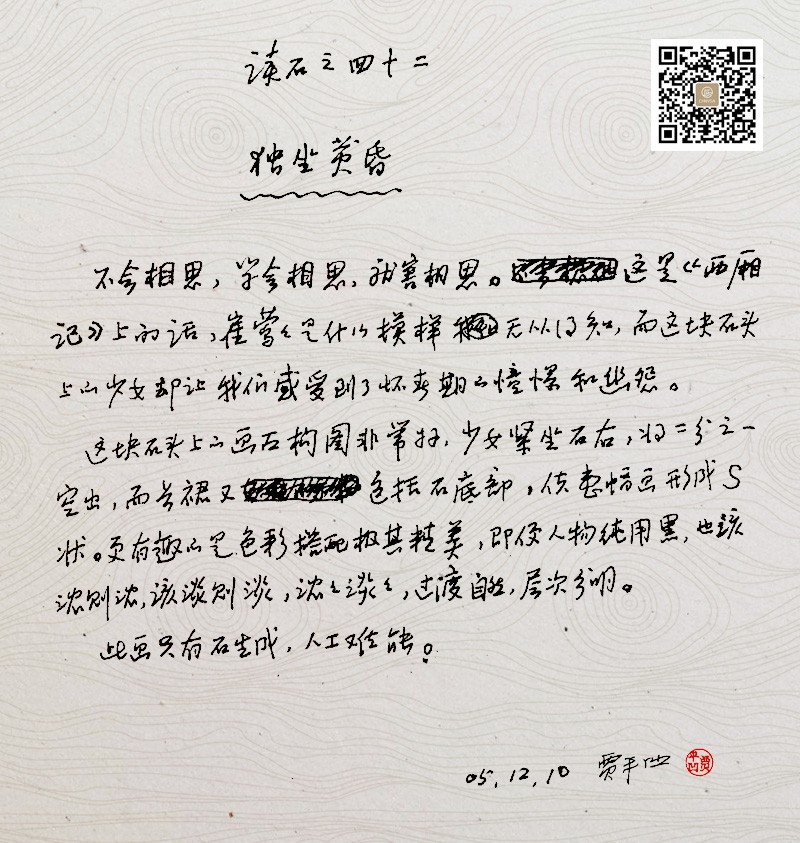 读石之四十二
独坐黄昏
不会相思，学会相思，就害相思。这是《西厢
记》上的话，崔莺々是什么模样无从得知，而这块石头
上的少女却让我们感受到了怀春期的憧憬和幽怨。
这块石头上的画面构图非常好，少女紧坐石右，将二分之一
空出，而长裙又包括石底部，使整幅画形成S
状。更有趣的是色彩搭配极其精美，即便人物纯用黑，也该
浓则浓，该淡则淡，浓々淡々，过渡自然，层次分明。
此画只有石生成，人工难能。
05.12.10 贾平凹
贾平凹